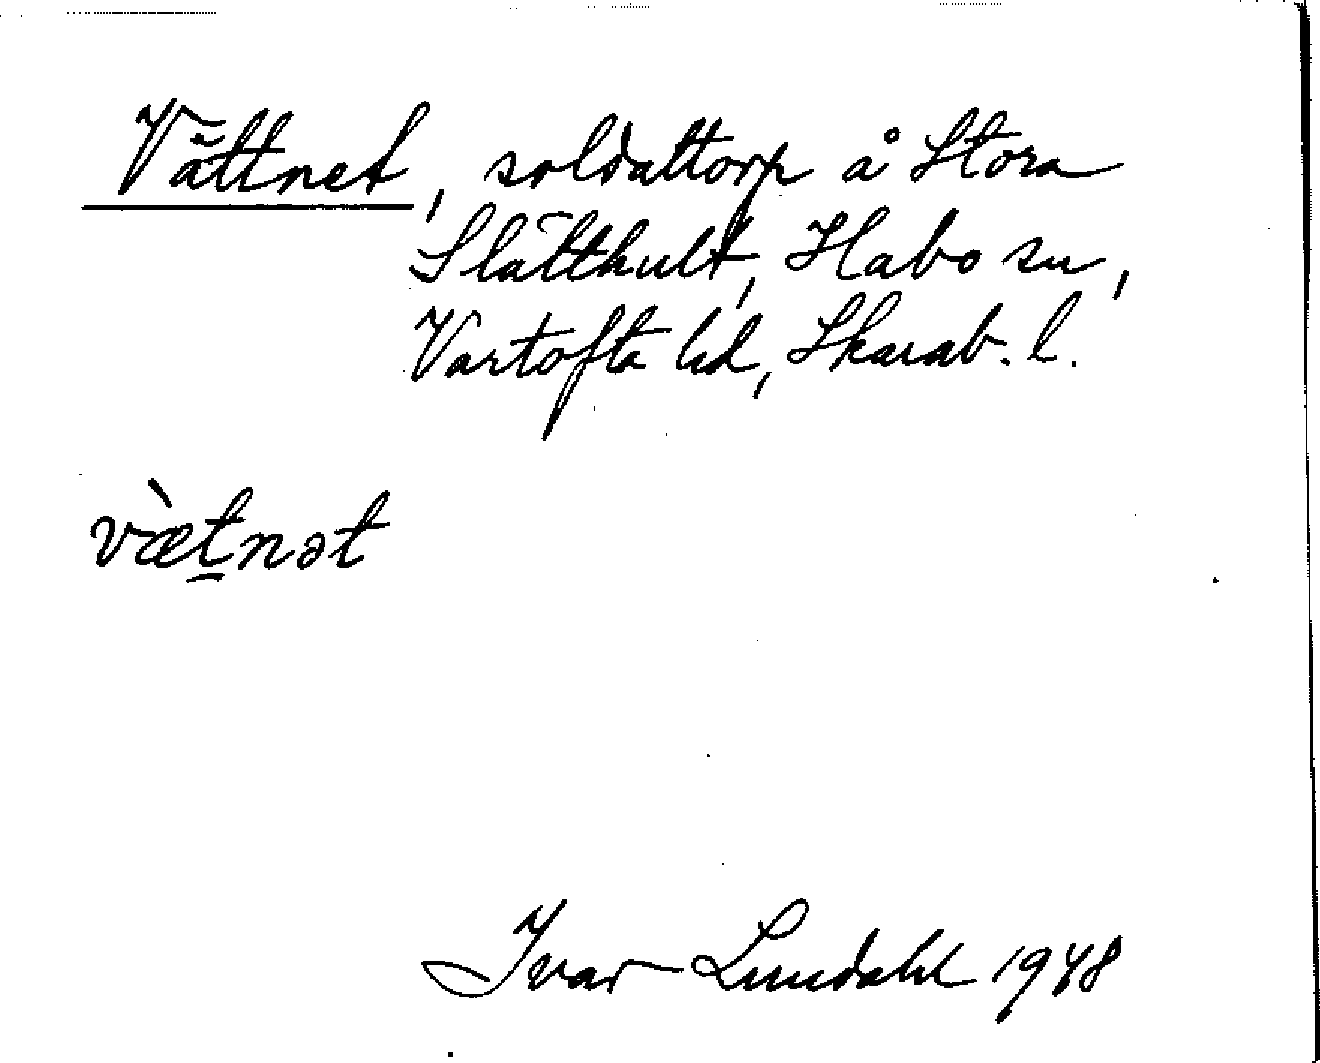 Vättnet, soldattorp å Stora
Slätthult, Habo sn,
Vartofta hd, Skarab. l.
væ̀t̲nət
Ivar Lundahl 1948